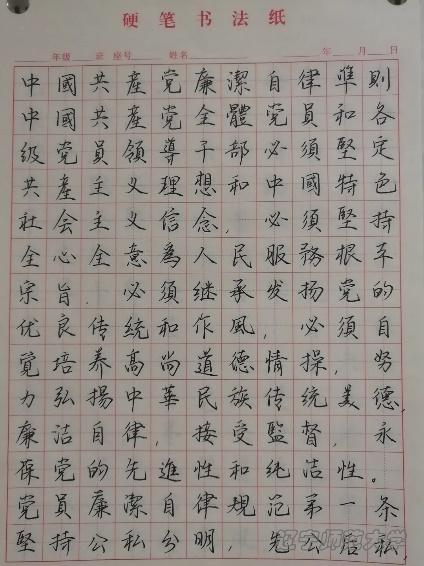 硬笔书法纸
年级 班 座号 姓名 年 月 日
中國共產党廉潔自律準則
中國共產党全體党員和各
级党員領導干部必須堅定
共產主义理想和中國特色
社会主义信念，必須堅持
全心全意為人民服務根本
宗旨，必須继承发扬党的
优良传統和作風，必須自
覺培养高尚道德情操，努
力弘揚中華民族传统美德，
廉洁自律，接受監督，永
保党的先進性和纯洁性。
党員廉潔自律规范第一条
堅持公私分明，先公后私，
辽宁师范大学